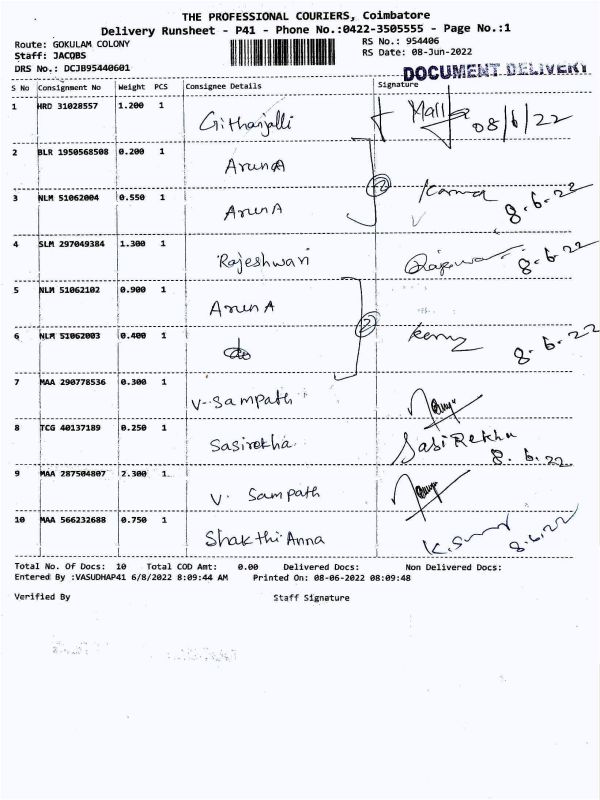 THE PROFESSIONAL COURIERS, Coimbatore
Delivery Runsheet - P41 - Phone No.:0422-3505555 - Page No.:1
Route: GOKULAM COLONY RS No.: 954406
Staff: JACOBS RS Date: 08-Jun-2022
DRS No.: DCJB95440601
DOCUMENT DELIVERY
S No Consignment No Weight PCS Consignee Details Signature
1 HRD 31028557 1.200 1 Githanjalli Malli 08/6/22
2 BLR 1950568508 0.200 1 ArunA
2
3 NLM 51062004 0.550 1 ArunA 8.6.22
4 SLM 297049384 1.300 1 Rajeshwari 8.6.22
5 NLM 51062102 0.900 1 ArunA
2
6 NLM 51062003 0.400 1 do 8.6.22
7 MAA 290778536 0.300 1 V. Sampath
8 TCG 40137189 0.250 1 Sasirekha. Sasi Rekha
8.6.22
9 MAA 287504807 2.300 1 V. Sampath
10 MAA 566232688 0.750 1 Shakthi Anna 8.6.22
Total No. Of Docs: 10 Total COD Amt: 0.00 Delivered Docs: Non Delivered Docs:
Entered By :VASUDHAP41 6/8/2022 8:09:44 AM Printed On: 08-06-2022 08:09:48
Verified By Staff Signature